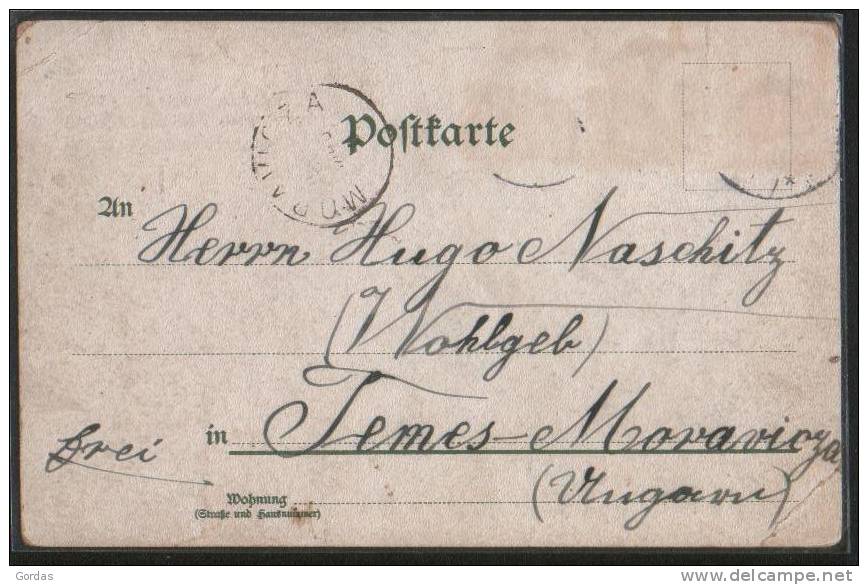 Postkarte
An
Herrn Hugo Naschitz
(Wohlgeb)
in Temes-Moravicza
Frei
(Ungarn)
Wohnung
(Straße und Hausnummer)
Gordas
www.delcampe.net